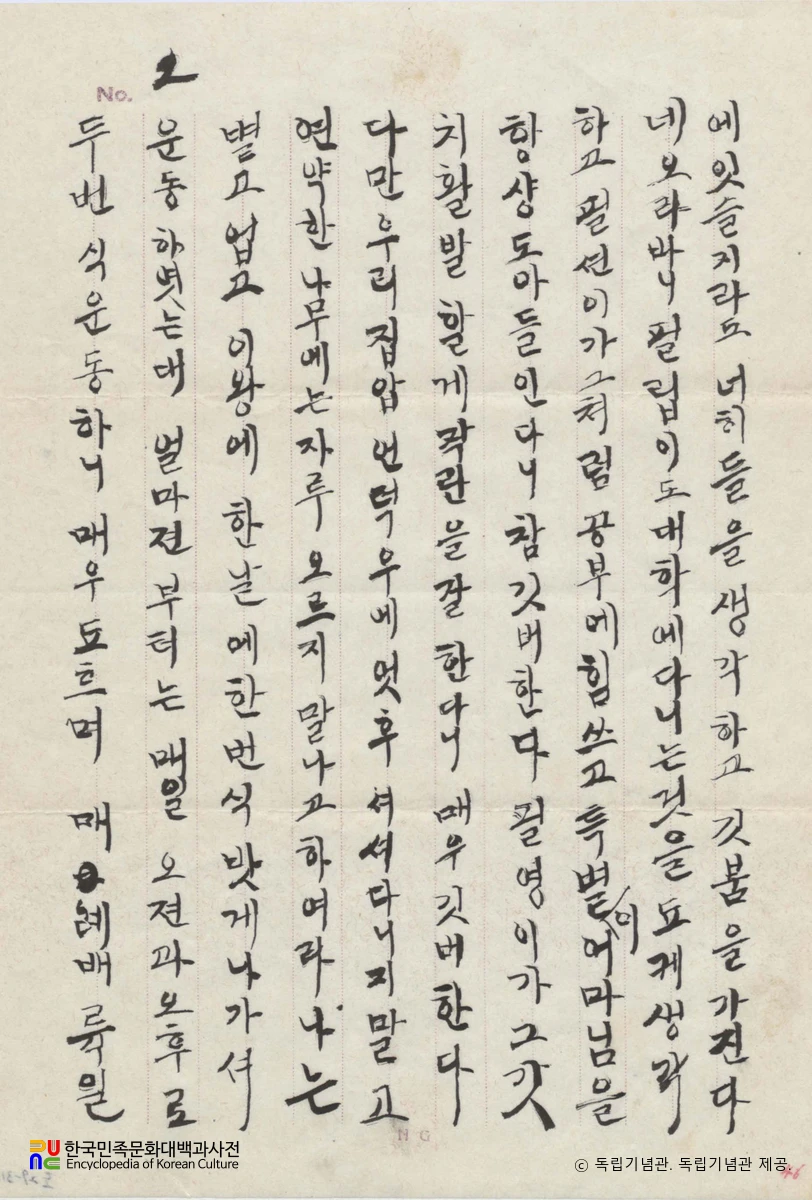 No. 2
에잇슬지라도 너히들을 생각하고 깃붐을 가진다
네오라바니 필립이도 대학에다니는것을 됴케생각
하고 필선이가 그처럼 공부에힘쓰고 특별이어마님을
항상 도아들인다니 참 깃버한다 필영이가 그갓
치 활발할게 작란을 잘 한다니 매우깃버한다
다만 우리집압 언덕우에 엇후 셔셔다니지말고
연약한 나무에는 자루 오르지말나고하여라 나는
별고업고 이왕에 한날에한번식 밧게나가셔
운동하엿는대 얼마젼부터는 매일 오젼과오후로
두번식운동하니 매우됴흐며 매례배륙일
한국민족문화대백과사전
Encyclopedia of Korean Culture
© 독립기념관. 독립기념관 제공
46